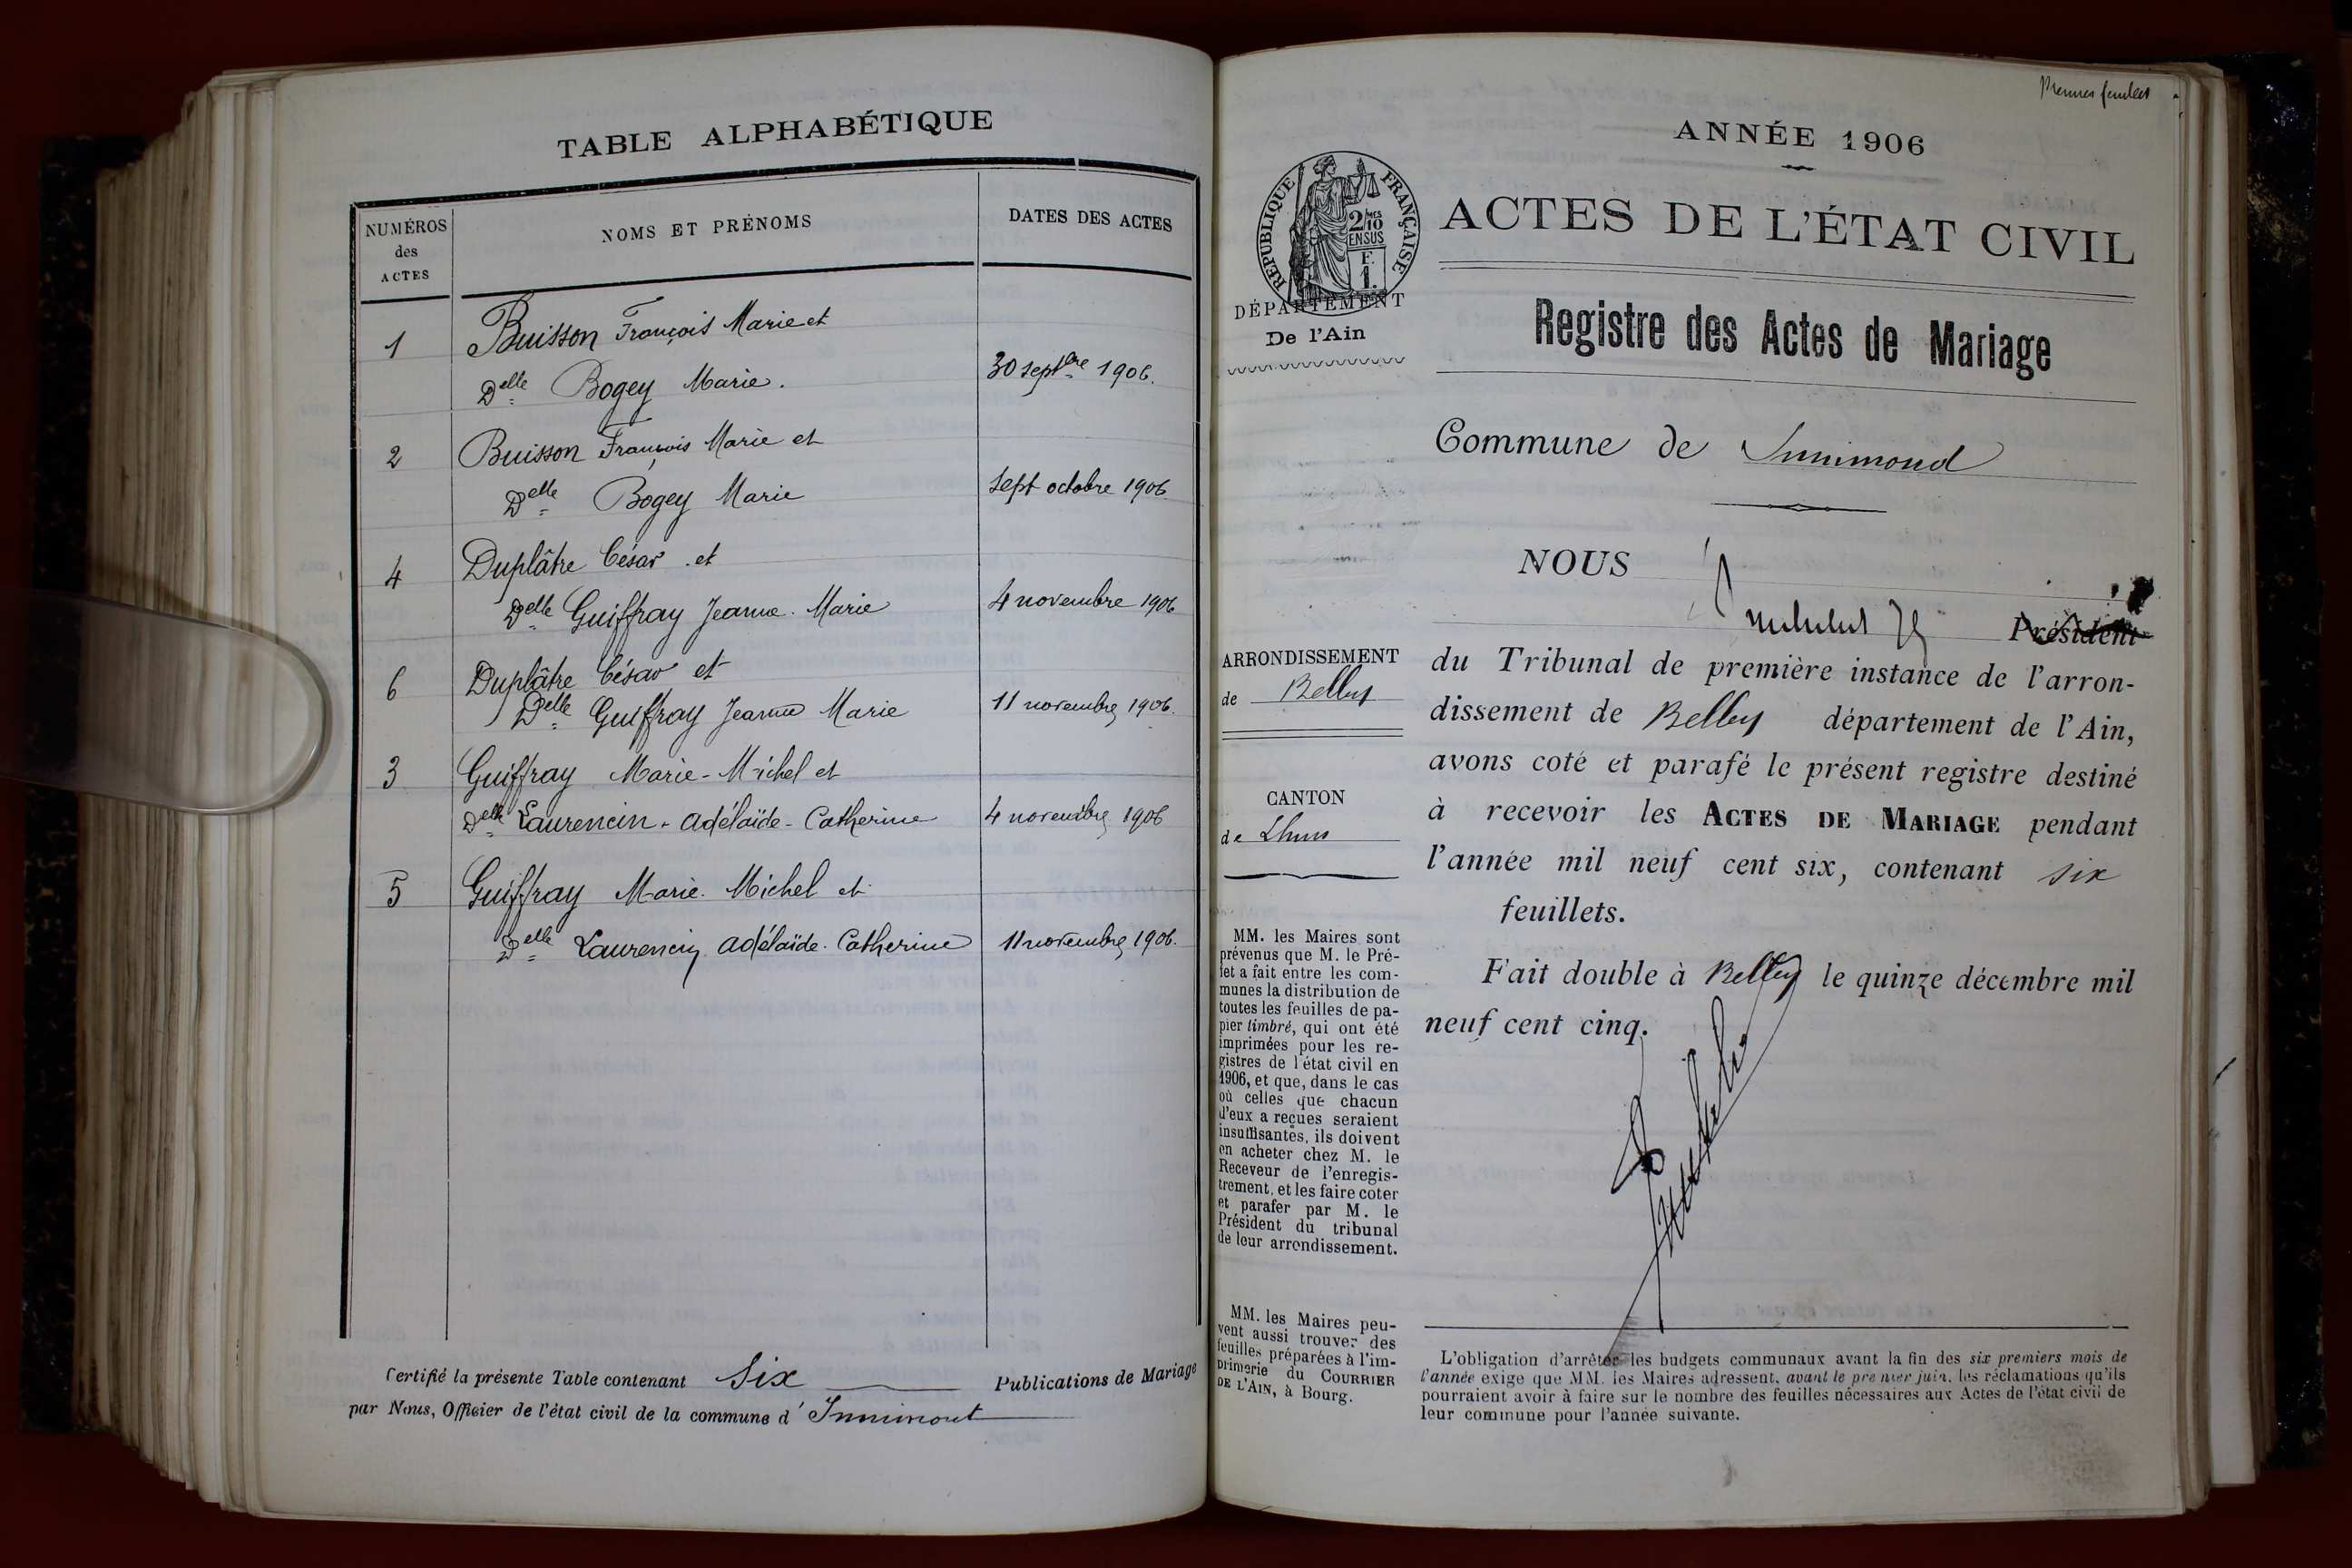 TABLE ALPHABÉTIQUE
NUMÉROS
des
ACTES
NOMS ET PRÉNOMS
DATES DES ACTES
1
Buisson François Marie et
Delle Bogey Marie.
30 septbre 1906.
2
Buisson François Marie et
Delle Bogey Marie
sept octobre 1906
4
Duplâtre César et
Delle Guiffray Jeanne. Marie
4 novembre 1906
6
Duplâtre César et
Delle Guiffray Jeanne Marie
11 novembre 1906.
3
Guiffray Marie-Michel et
Delle Laurencin-Adélaïde-Catherine
4 novembre 1906
5
Guiffray Marie. Michel et
Delle Laurencin Adélaïde. Catherine
11 novembre 1906.
Certifié la présente Table contenant Six Publications de Mariage
par Nous, Officier de l'état civil de la commune d' Innimont
Premier feuillet
ANNÉE 1906
RÉPUBLIQUE FRANÇAISE
2/10 MES
EN SUS
F.
1.
ACTES DE L'ÉTAT CIVIL
DÉPARTEMENT
De l'Ain
Registre des Actes de Mariage
Commune de Innimond
NOUS
Président
ARRONDISSEMENT
de Belley
du Tribunal de première instance de l'arron-
dissement de Belley département de l'Ain,
avons coté et parafé le présent registre destiné
à recevoir les ACTES DE MARIAGE pendant
l'année mil neuf cent six, contenant six
feuillets.
Fait double à Belley le quinze décembre mil
neuf cent cinq.
CANTON
de Lhuis
MM. les Maires sont
prévenus que M. le Pré-
fet a fait entre les com-
munes la distribution de
toutes les feuilles de pa-
pier timbré, qui ont été
imprimées pour les re-
gistres de l'état civil en
1906, et que, dans le cas
où celles que chacun
d'eux a reçues seraient
insuffisantes, ils doivent
en acheter chez M. le
Receveur de l'enregis-
trement, et les faire coter
et parafer par M. le
Président du tribunal
de leur arrondissement.
MM. les Maires peu-
vent aussi trouver des
feuilles préparées à l'im-
primerie du COURRIER
DE L'AIN, à Bourg.
L'obligation d'arrêter les budgets communaux avant la fin des six premiers mois de
l'année exige que MM. les Maires adressent, avant le premier juin, les réclamations qu'ils
pourraient avoir à faire sur le nombre des feuilles nécessaires aux Actes de l'état civil de
leur commune pour l'année suivante.